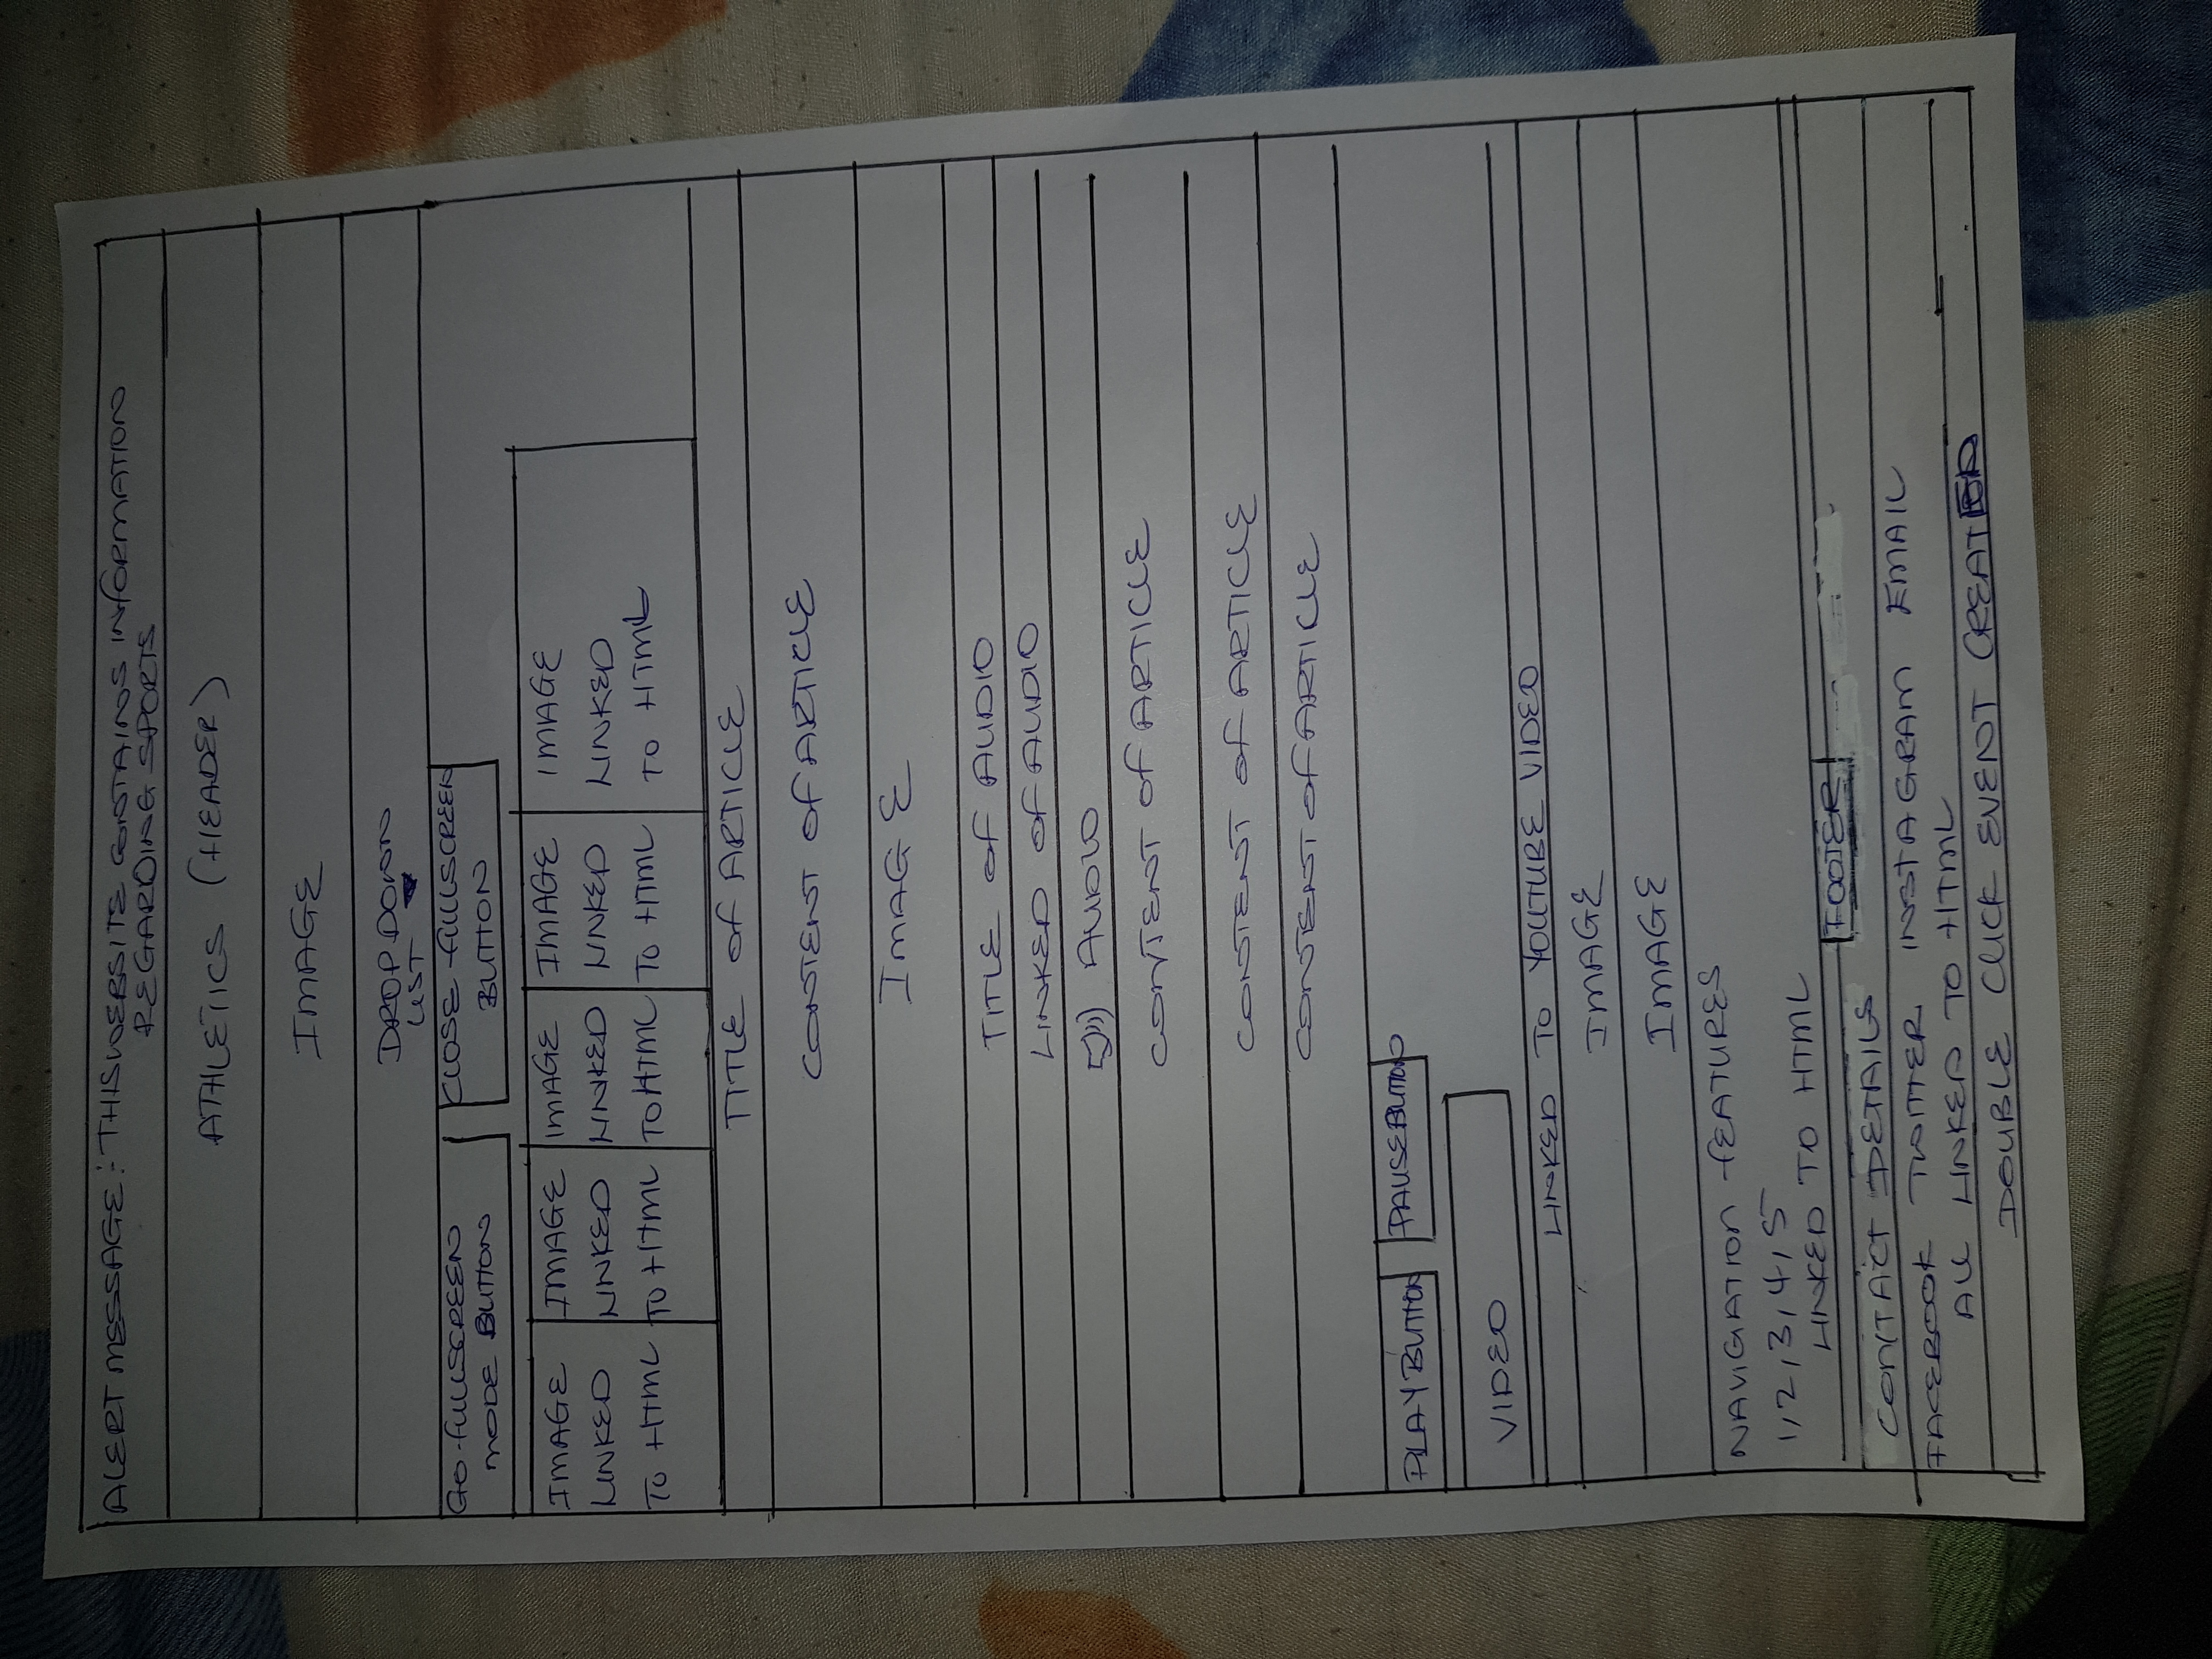 ALERT MESSAGE:- THIS WEBSITE CONTAINS INFORMATION
REGARDING SPORTS
ATHLETICS (HEADER)
IMAGE
DROP DOWN
LIST
GO-FULLSCREEN
MODE BUTTON
CLOSE -FULLSCREEN
BUTTON
IMAGE
LINKED
TO HTML
IMAGE
LINKED
TO HTML
IMAGE
LINKED
TO HTML
IMAGE
LINKED
TO HTML
IMAGE
LINKED
TO HTML
TITLE OF ARTICLE
CONTENT OF ARTICLE
IMAGE
TITLE OF AUDIO
LINKED OF AUDIO
AUDIO
CONTENT OF ARTICLE
CONTENT OF ARTICLE
CONTENT OF ARTICLE
PLAY BUTTON
PAUSE BUTTON
VIDEO
LINKED TO YOUTUBE VIDEO
IMAGE
IMAGE
NAVIGATION FEATURES
1,2,3,4,5
LINKED TO HTML
FOOTER
CONTACT DETAILS
FACEBOOK TWITTER INSTAGRAM EMAIL
ALL LINKED TO HTML
DOUBLE CLICK EVENT CREATED